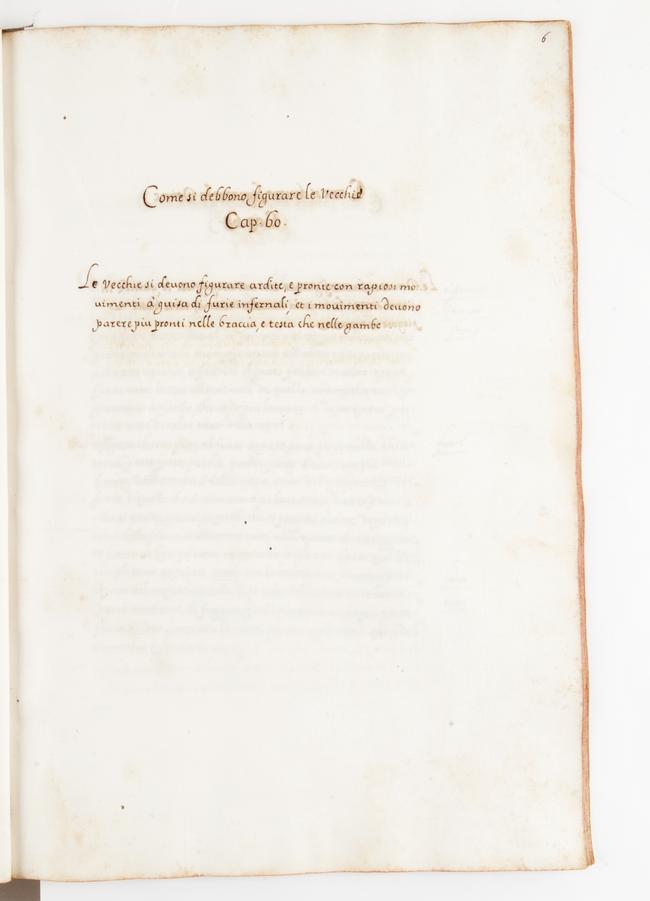 6
Come si debbono figurare le Vecchie
Cap. 60.
Le vecchie si deuono figurare ardite, e pronte con rapiosi mo
uimenti à guisa di furie infernali, et i mouimenti deuono
parere piu pronti nelle braccia, e testa che nelle gambe